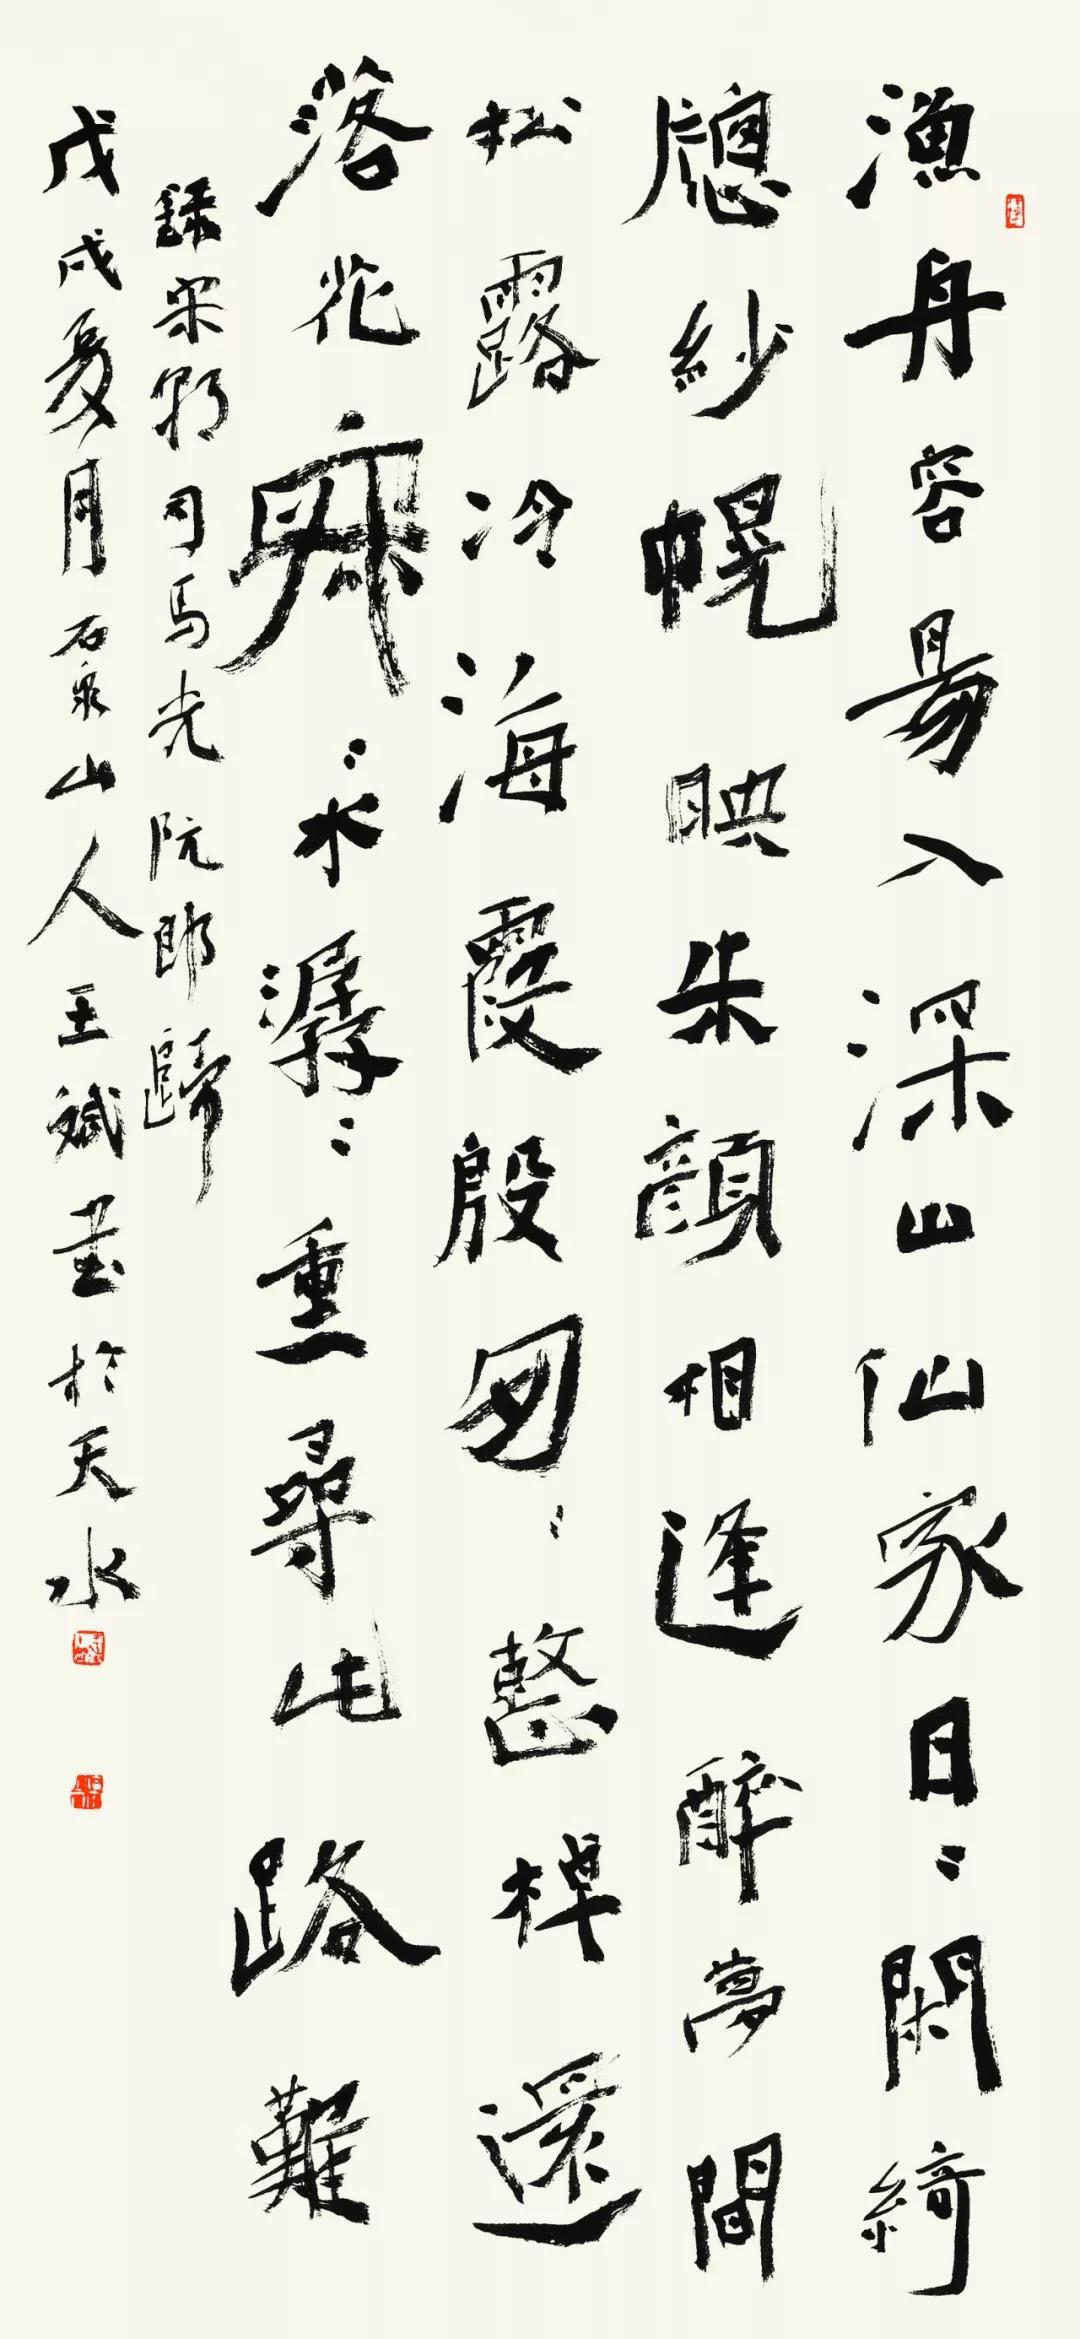 漁舟容易入深山仙家日〻閑綺
牕紗幌映朱顏相逢醉夢間
松露冷海霞殷匆〻整棹還
落花寂〻水潺〻重尋此路難
錄宋朝司馬光阮郎歸
戊戌夏月石泉山人王斌書於天水